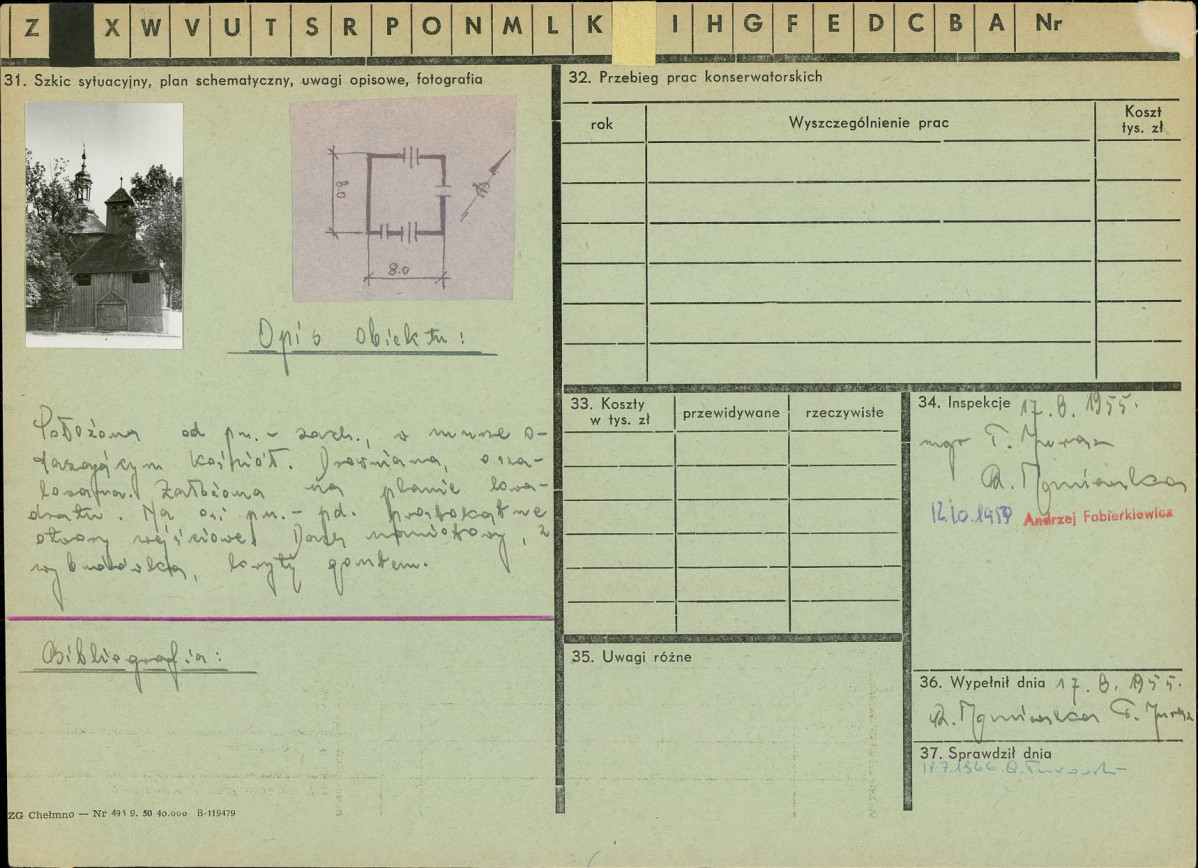 Z X W V U T S R P O N M L K I H G F E D C B A Nr
31. Szkic sytuacyjny, plan schematyczny, uwagi opisowe, fotografia
8.0
8.0
Opis obiektu:
Położona od pn.-zach., w murze o-
taczającym kościół. Drewniana, osza-
lowana. Założona na planie kwa-
dratu. Na osi pn.-pd. prostokątne
otwory wejściowe. Dach namiotowy, z
wybudówką, kryty gontem.
Bibliografia:
ZG Chełmno — Nr 495 9. 50 40.000 B-119479
32. Przebieg prac konserwatorskich
rok
Wyszczególnienie prac
Koszt
tys. zł
33. Koszty
w tys. zł
przewidywane
rzeczywiste
34. Inspekcje 17.8.1955.
mgr T.
12.10.1959 Andrzej Fabierkiewicz
35. Uwagi różne
36. Wypełnił dnia 17.8.1955.
37. Sprawdził dnia